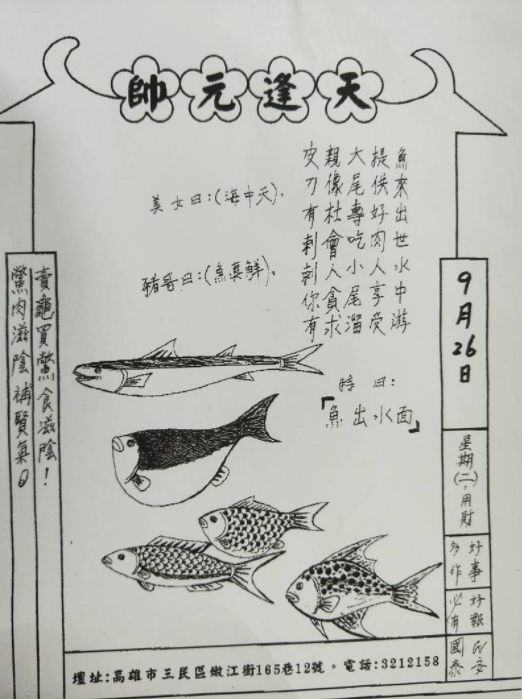 天逢元帥
魚來出世水中游
提供好肉人享受
大尾專吃小尾溜
親像社會人貪求
皮刀有刺剥你有
美女曰：(海中天)。
豬哥曰：(魚真鮮)。
特曰：
「魚出水面」
9月26日
星期(二)．用財
好事多作
好報必有
民安國泰
賣龜買鱉食滋陰！
鱉肉滋陰補腎氣
壇址:高雄市三民區嫩江街165巷12號。電話:3212158